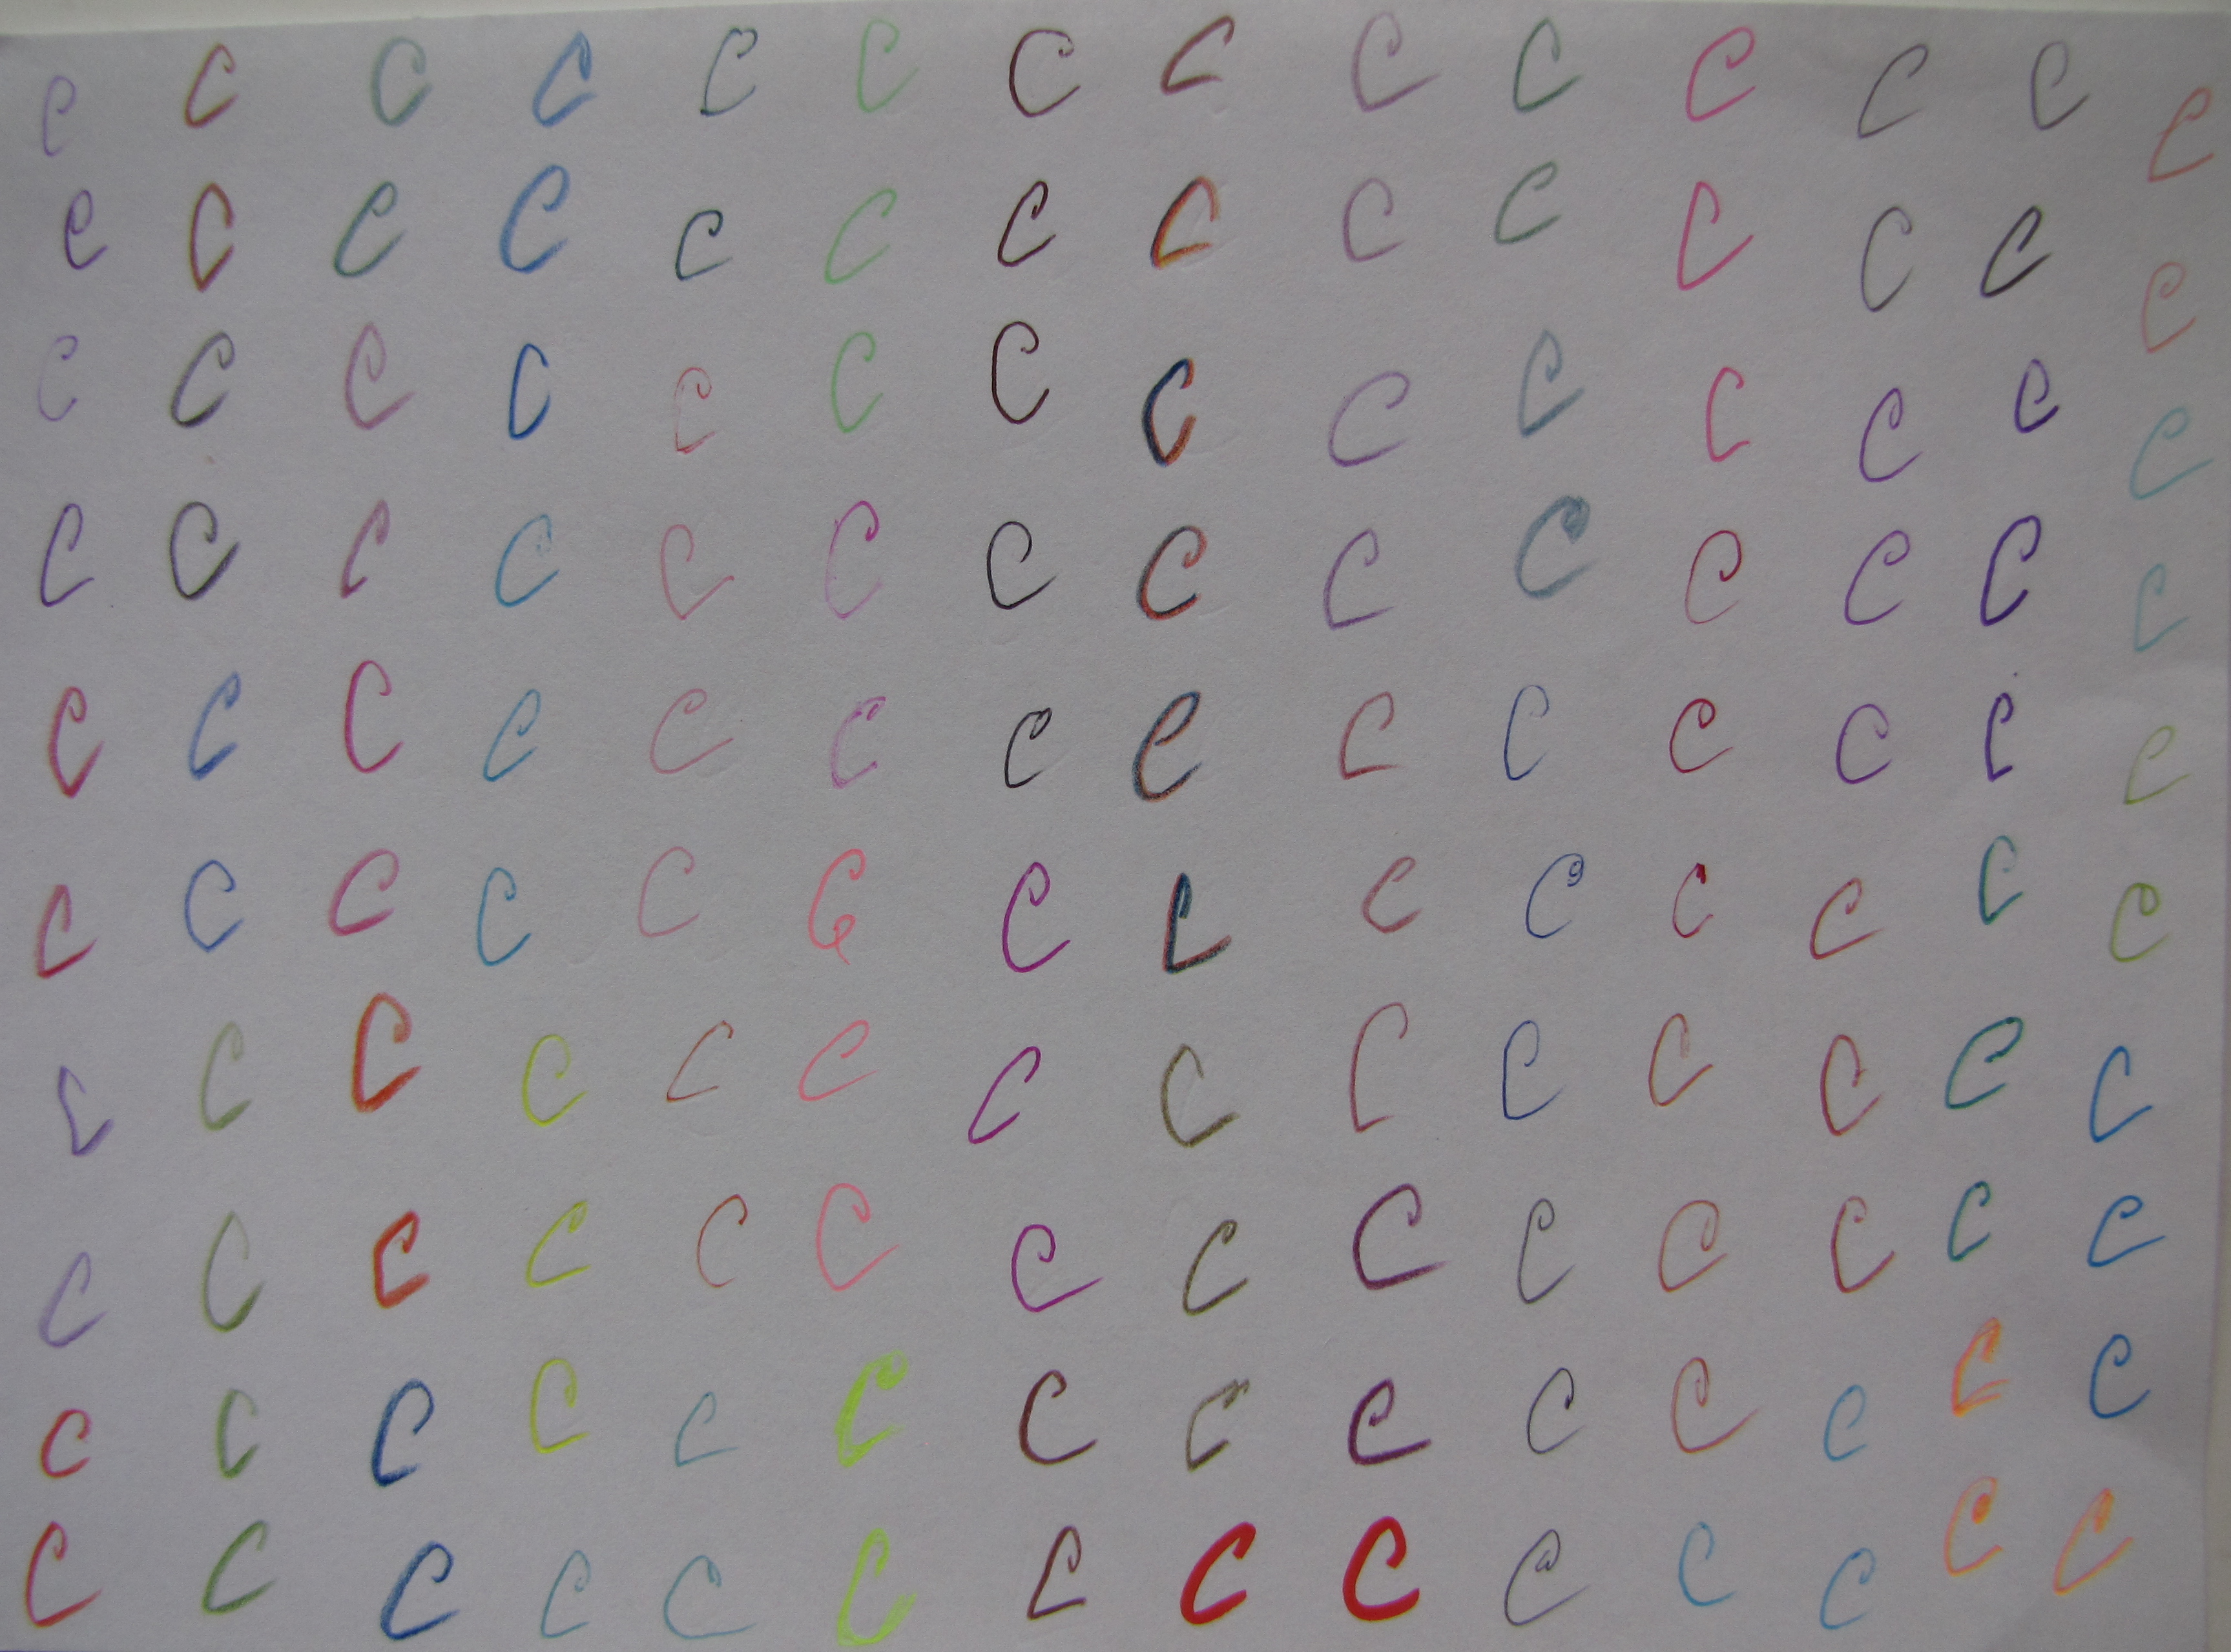 C C C C C C C C C C C C C C
C C C C C C C C C C C C C C
C C C C C C C C C C C C C C
C C C C C C C C C C C C C C
C C C C C C C C C C C C C C
C C C C C C C C C C C C C C
C C C C C C C C C C C C C C
C C C C C C C C C C C C C C
C C C C C C C C C C C C C C
C C C C C C C C C C C C C C